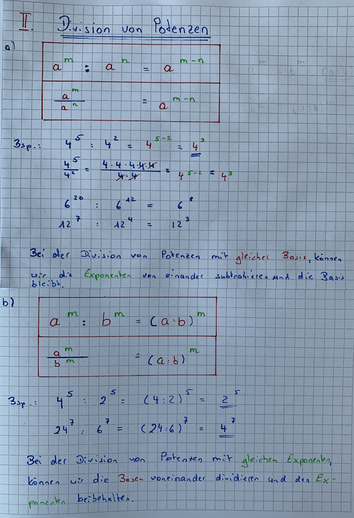 II. Division von Potenzen
a)
a^m : a^n = a^(m-n)
a^m / a^n = a^(m-n)
Bsp.: 4^5 : 4^2 = 4^(5-2) = 4^3
4^5 / 4^2 = 4·4·4·4·4 / 4·4 = 4^(5-2) = 4^3
6^20 : 6^12 = 6^8
12^7 : 12^4 = 12^3
Bei der Division von Potenzen mit gleicher Basis, können
wir die Exponenten von einander subtrahieren und die Basis
bleibt.
b)
a^m : b^m = (a:b)^m
a^m / b^m = (a:b)^m
Bsp.: 4^5 : 2^5 = (4:2)^5 = 2^5
24^7 : 6^7 = (24:6)^7 = 4^7
Bei der Division von Potenzen mit gleichen Exponenten,
können wir die Basen voneinander dividieren und den Ex-
ponenten beibehalten.